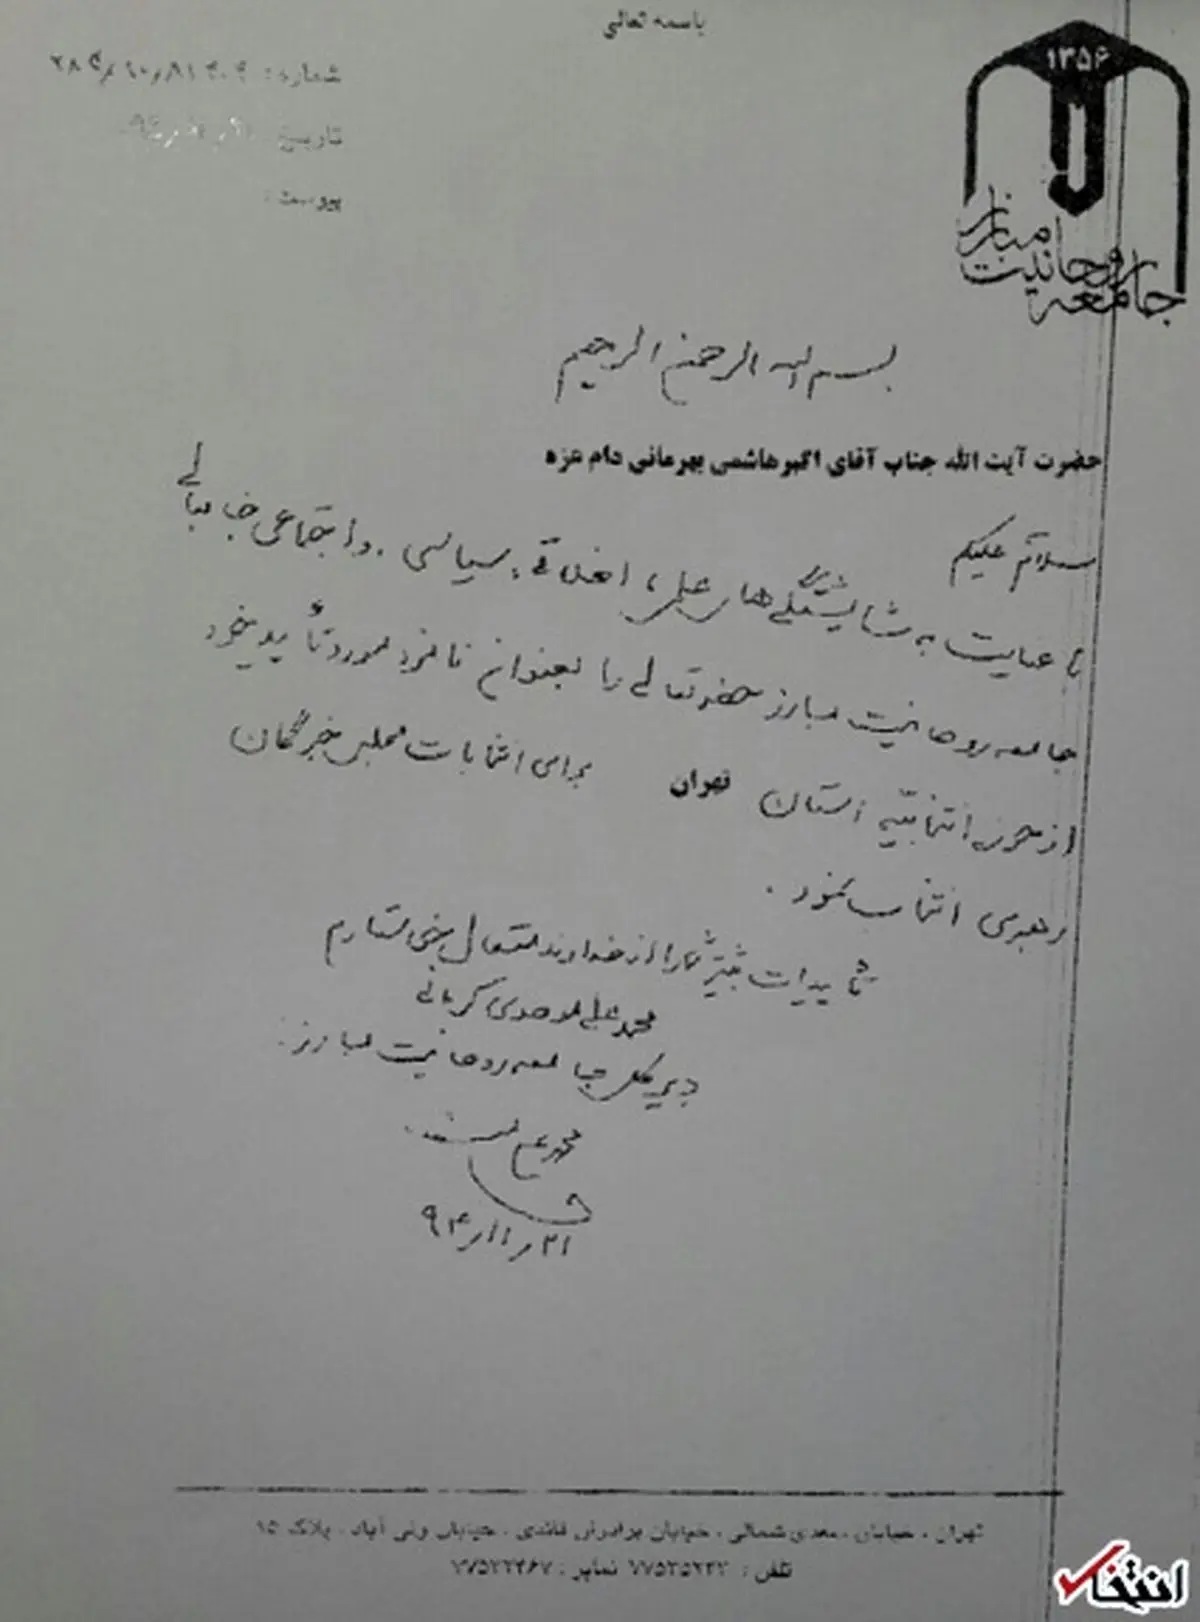 باسمه تعالی
۱۳۵۶
جامعه روحانیت مبارز
شماره:
تاریخ
پیوست:
بسم الله الرحمن الرحیم
حضرت آیت الله جناب آقای اکبر هاشمی بهرمانی دام عزه
سلام علیکم
با عنایت به شایستگی‌های علمی، اخلاقی، سیاسی و اجتماعی جنابعالی
جامعه روحانیت مبارز حضرتعالی را بعنوان نامزد مورد تأیید خود
از حوزه انتخابیه استان تهران برای انتخابات مجلس خبرگان
رهبری انتخاب نمود.
تأییدات بیشتر شما را از خداوند متعال خواستارم
محمدعلی موحدی کرمانی
دبیرکل جامعه روحانیت مبارز
۹۴/۱۱/۲۱
تهران، خیابان سعدی شمالی، خیابان برادران قائدی، خیابان ولی آباد، پلاک ۱۵
تلفن: ۷۷۵۳۵۲۳۳ نمابر: ۷۷۵۳۳۳۶۷
انتخاب